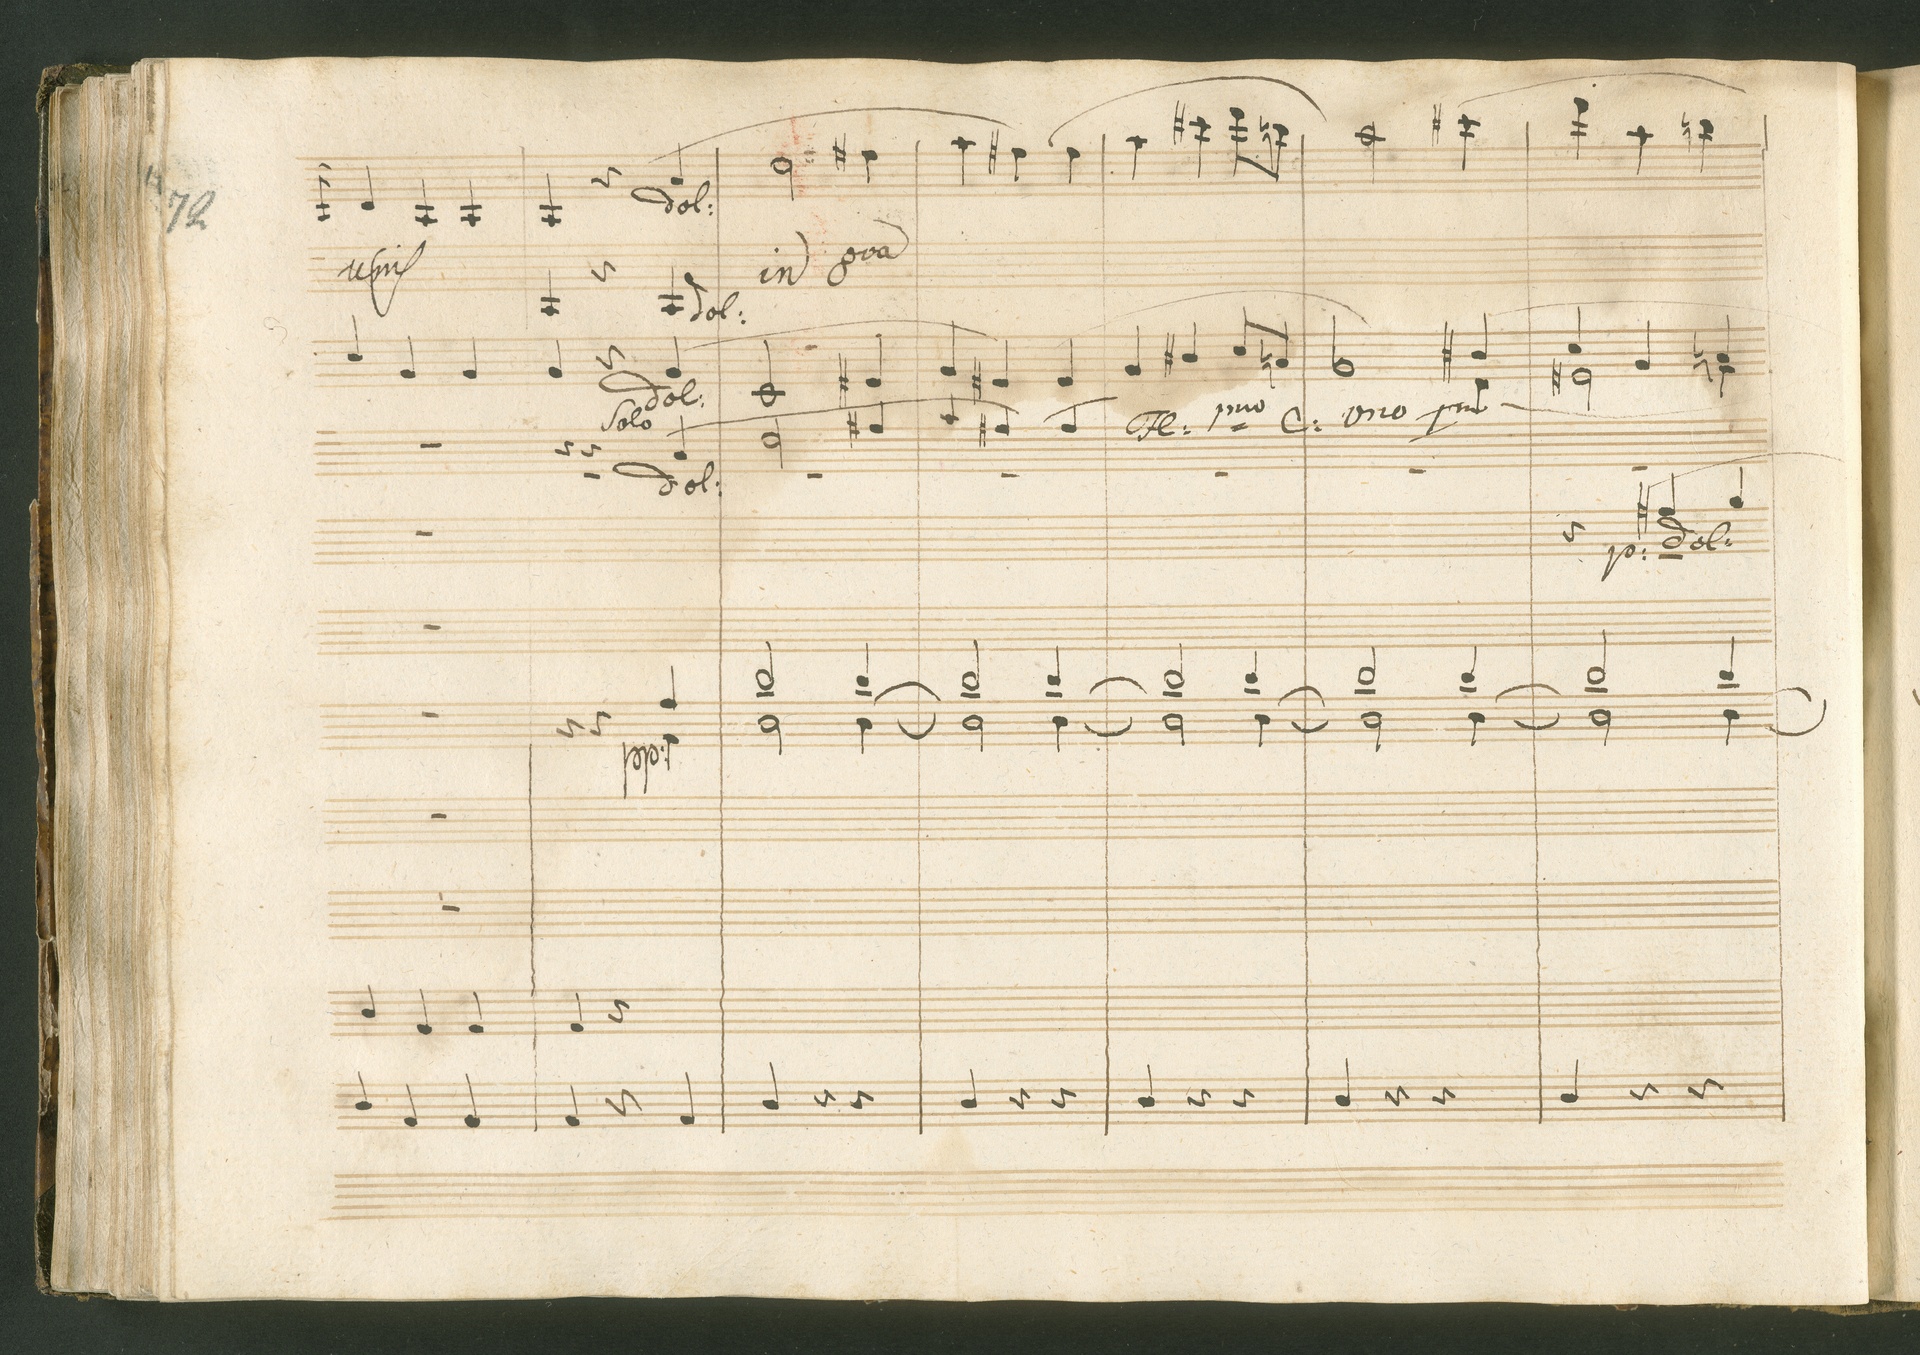 72
dol:
unis
in 8va
dol:
dol:
Solo
Fl: pmo C: vno pmo
dol:
p: dol:
dol: